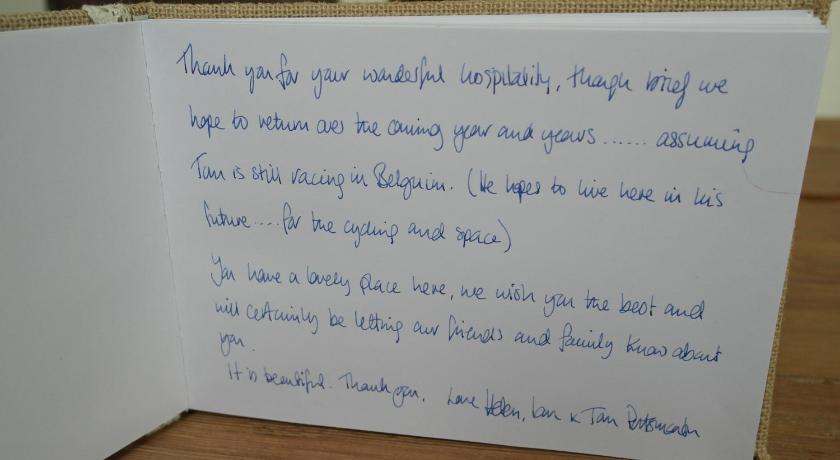 Thank you for your wonderful hospitality, though brief we
hope to return over the coming year and years ...... assuming
Tam is still racing in Belguim. (He hopes to live here in his
future .... for the cycling and space)
You have a lovely place here, we wish you the best and
will certainly be letting our friends and family know about
you.
It is beautiful. Thank you. Love Helen, Ian & Tam